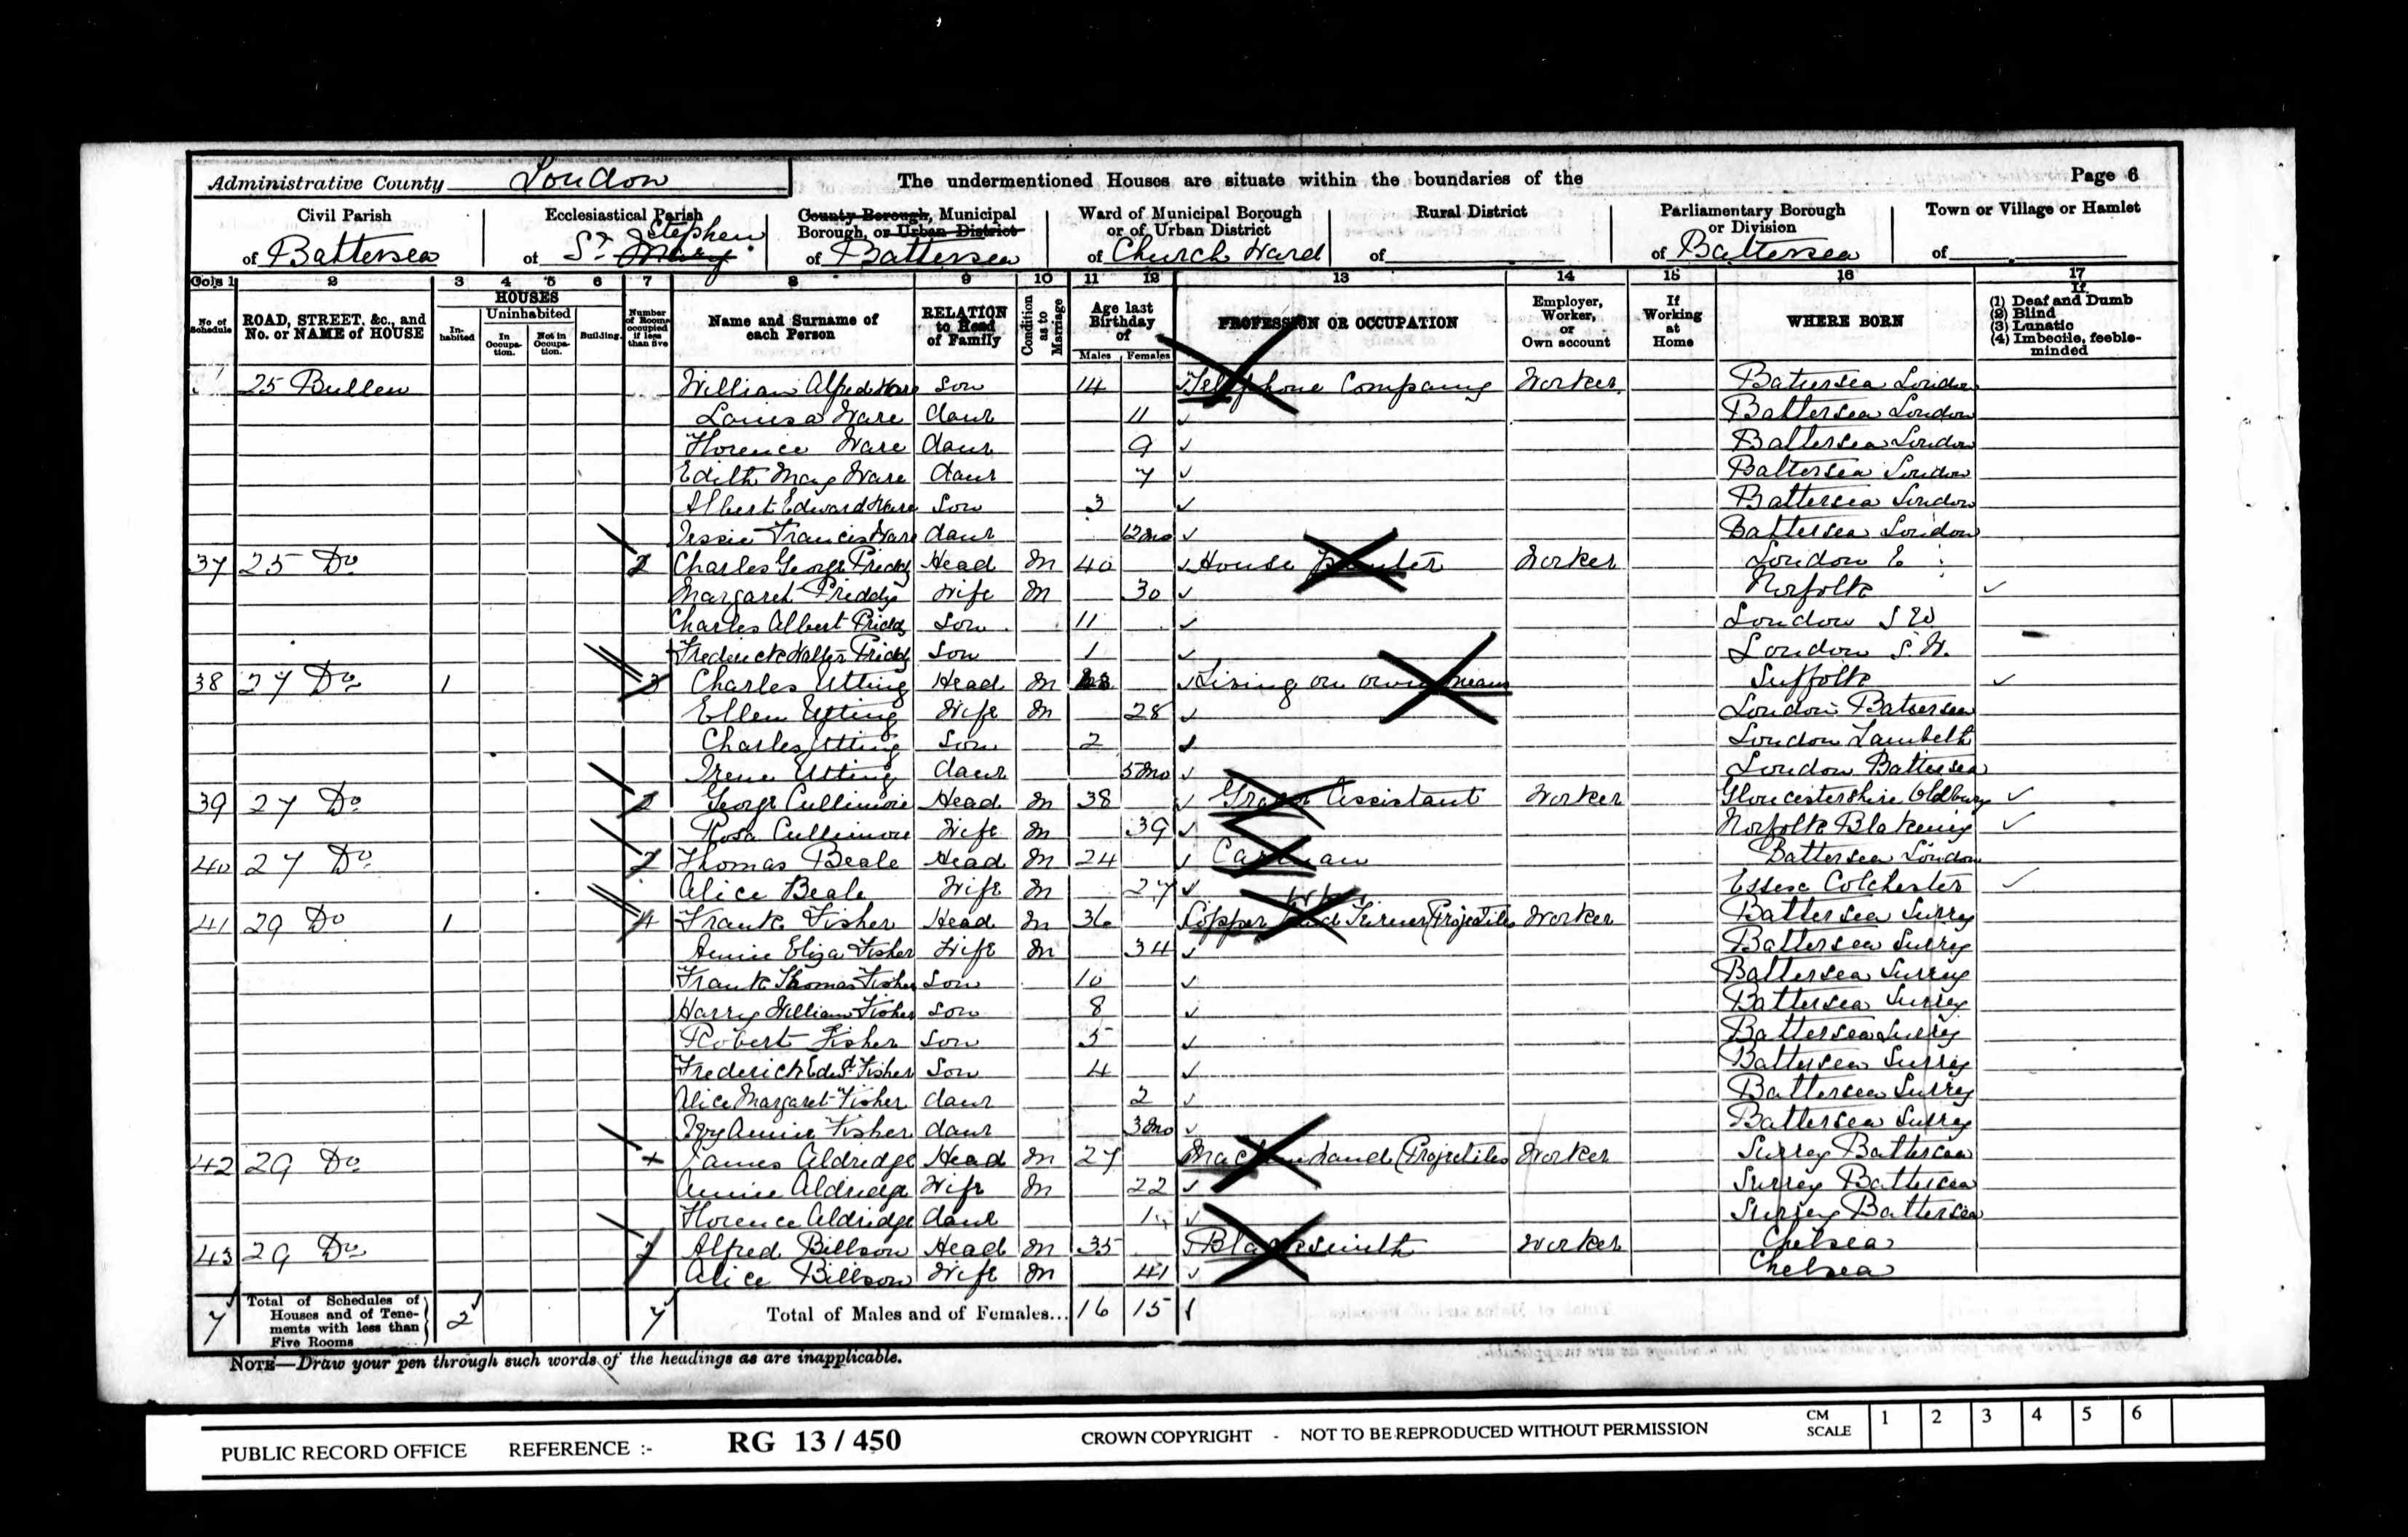 Administrative County London The undermentioned Houses are situate within the boundaries of the Page 6
Civil Parish Ecclesiastical Parish County Borough, Municipal Ward of Municipal Borough Rural District Parliamentary Borough Town or Village or Hamlet
Borough, or Urban District or of Urban District or Division
of Battersea of St. Mary Stephen of Battersea of Church Ward of of Battersea of
Cols 1 2 3 4 5 6 7 8 9 10 11 12 13 14 15 16 17
No. of Schedule ROAD, STREET, &c., and No. or NAME of HOUSE HOUSES In-habited Uninhabited In Occupa-tion. Not in Occupa-tion. Building. Number of Rooms occupied if less than five Name and Surname of each Person RELATION to Head of Family Condition as to Marriage Age last Birthday of Males Females PROFESSION OR OCCUPATION Employer, Worker, or Own account If Working at Home WHERE BORN If (1) Deaf and Dumb (2) Blind (3) Lunatic (4) Imbecile, feeble-minded
25 Bullen William Alfred Ware Son 14 Telephone Company Worker Battersea London
Louisa Ware daur 11 Battersea London
Florence Ware daur 9 Battersea London
Edith May Ware daur 7 Battersea London
Albert Edward Ware Son 3 Battersea London
Jessie Francis Ware daur 12mo Battersea London
37 25 Do 2 Charles George Priddy Head M 40 House Painter Worker London E
Margaret Priddy Wife M 30 Norfolk
Charles Albert Priddy Son 11 London S W
Frederick Walter Priddy Son 1 London S.W.
38 27 Do 1 3 Charles Utting Head M Living on own means Suffolk
Ellen Utting Wife M 28 London Battersea
Charles Utting Son 2 London Lambeth
Irene Utting daur 5mo London Battersea
39 27 Do 2 George Cullimore Head M 38 Assistant Worker Gloucestershire Oldbury
Rosa Cullimore Wife M 39 Norfolk Blakeney
40 27 Do 2 Thomas Beale Head M 24 Carman Battersea London
Alice Beale Wife M 27 Essex Colchester
41 29 Do 1 4 Frank Fisher Head M 36 Copper Band Turner (Projectiles Worker Battersea Surrey
Annie Eliza Fisher Wife M 34 Battersea Surrey
Frank Thomas Fisher Son 10 Battersea Surrey
Harry William Fisher Son 8 Battersea Surrey
Robert Fisher Son 5 Battersea Surrey
Frederick Edwd Fisher Son 4 Battersea Surrey
Alice Margaret Fisher daur 2 Battersea Surrey
Ivy Annie Fisher daur 3mo Battersea Surrey
42 29 Do James Aldridge Head M 27 Machine hand (Projectiles Worker Surrey Battersea
Annie Aldridge Wife M 22 Surrey Battersea
Florence Aldridge daur 1 Surrey Battersea
43 29 Do 2 Alfred Billson Head M 35 Blacksmith Worker Chelsea
Alice Billson Wife M 41 Chelsea
7 Total of Schedules of Houses and of Tene-ments with less than Five Rooms 2 7 Total of Males and of Females... 16 15
NOTE—Draw your pen through such words of the headings as are inapplicable.
PUBLIC RECORD OFFICE REFERENCE :- RG 13/450 CROWN COPYRIGHT - NOT TO BE REPRODUCED WITHOUT PERMISSION CM SCALE 1 2 3 4 5 6